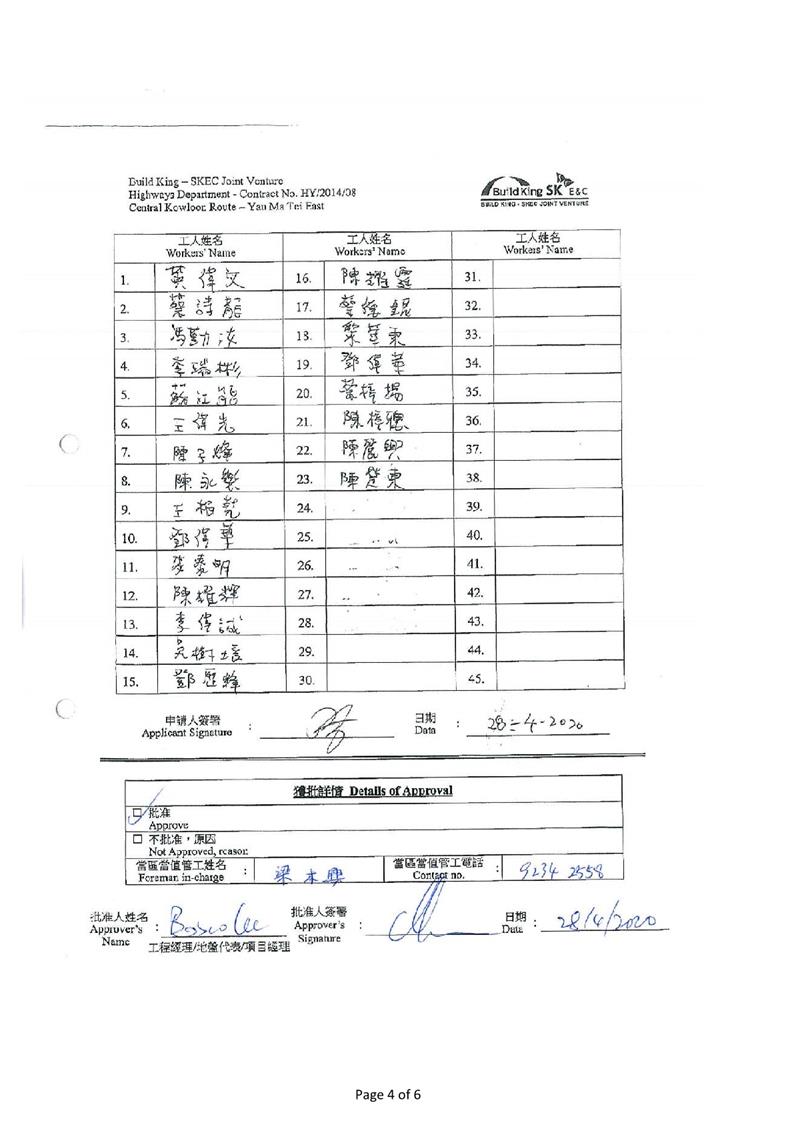 Build King – SKEC Joint Venture
Highways Department - Contract No. HY/2014/08
Central Kowloon Route – Yau Ma Tei East
Build King SK E&C
BUILD KING - SKEC JOINT VENTURE
工人姓名 工人姓名 工人姓名
Workers' Name Workers' Name Workers' Name
1. 黃偉文 16. 陳耀 31.
2. 蔡詩龍 17. 32.
3. 馮勤 18. 東 33.
4. 李瑞彬 19. 鄧偉華 34.
5. 蘇江龍 20. 35.
6. 王偉光 21. 陳 36.
7. 陳子峰 22. 陳麗興 37.
8. 陳永樂 23. 陳楚東 38.
9. 王 24. 39.
10. 鄧偉華 25. 40.
11. 明 26. 41.
12. 陳耀輝 27. 42.
13. 李偉誠 28. 43.
14. 吳樹 29. 44.
15. 鄧 30. 45.
申请人簽署 日期
Applicant Signature : Data : 28-4-2020
獲批詳情 Details of Approval
☐ 批准
Approve
☐ 不批准，原因
Not Approved, reason
當區當值管工姓名 當區當值管工電話
Foreman in-charge : 梁木興 Contact no. : 9234 2558
批准人姓名 批准人簽署 日期
Approver's : Bosco Lee Approver's : Data : 28/4/2020
Name Signature
工程經理/地盤代表/項目經理
Page 4 of 6